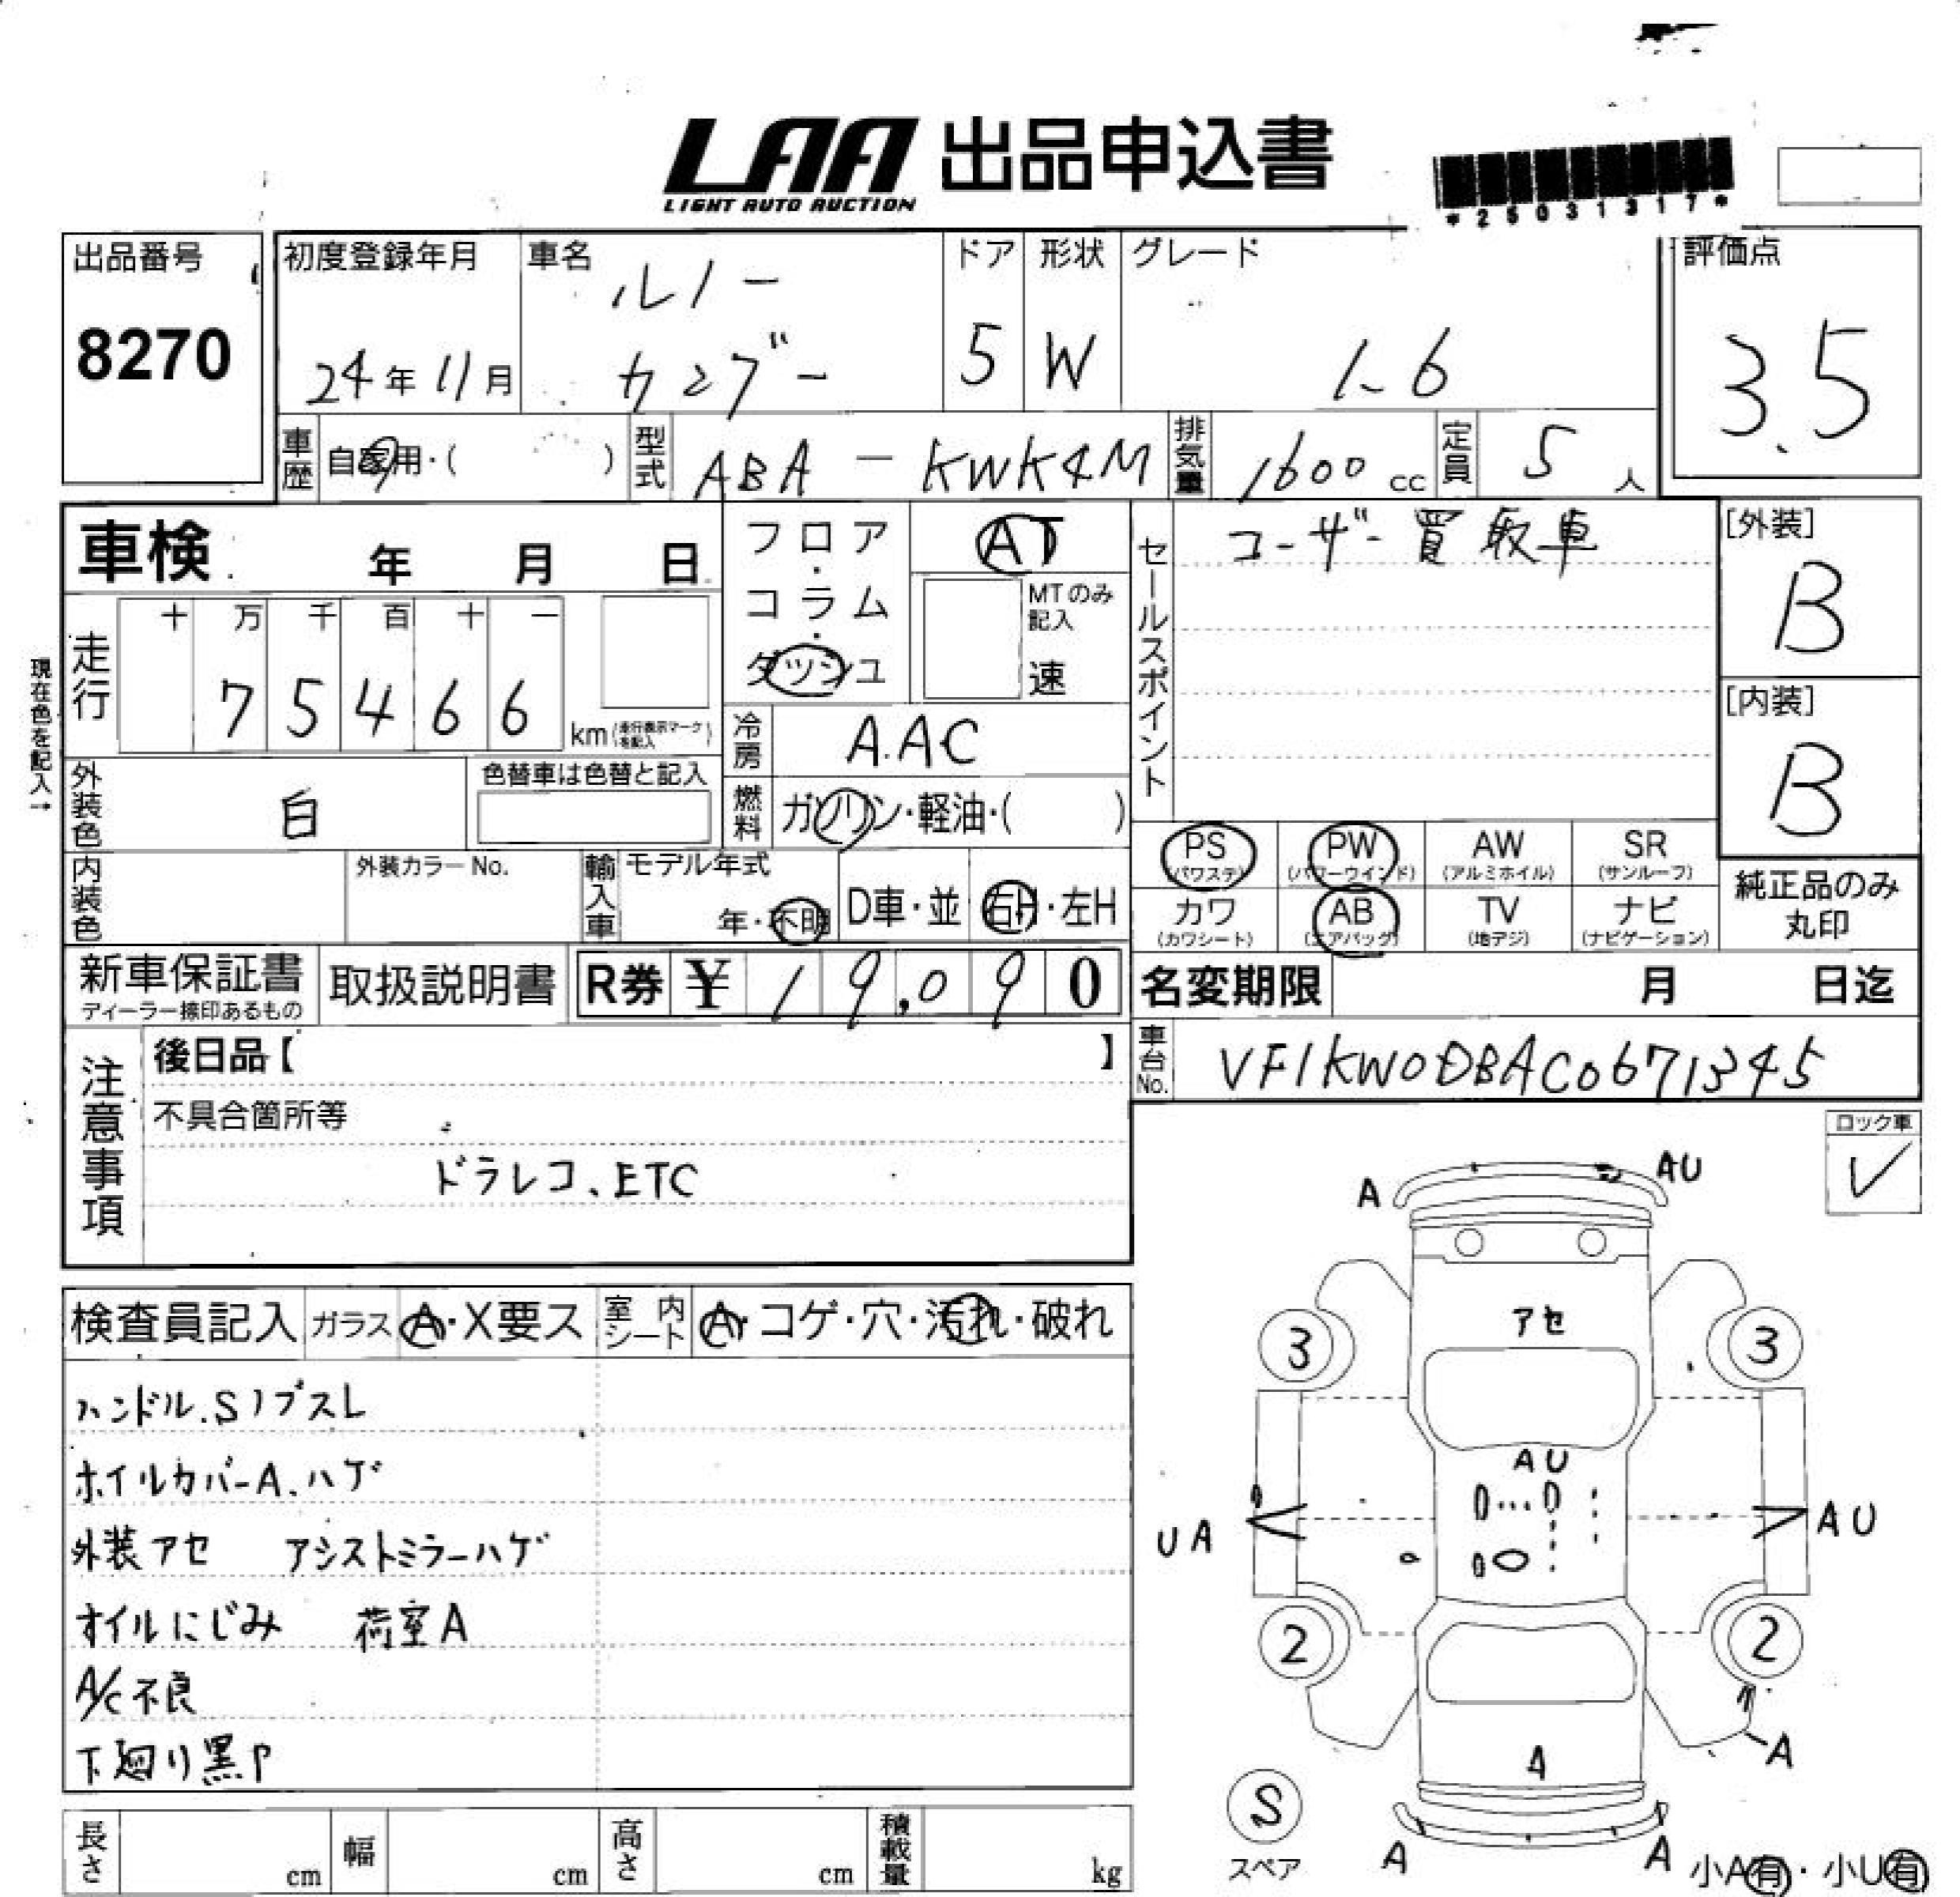 LAA 出品申込書
LIGHT AUTO AUCTION
*25031317*
出品番号
8270
初度登録年月
24年11月
車名
ルノー
カングー
ドア
5
形状
W
グレード
1.6
評価点
3.5
車歴
自家用・( )
型式
ABA-KWK4M
排気量
1600 cc
定員
5人
車検 年 月 日
現在色を記入→
走行
十 万 千 百 十 一
7 5 4 6 6
km(走行表示マークを記入)
外装色
白
色替車は色替と記入
内装色
外装カラーNo.
フロア・コラム・ダッシュ
AT
MTのみ記入
速
冷房
A.AC
燃料
ガソリン・軽油・( )
輸入車
モデル年式
年・不明
D車・並
右H・左H
セールスポイント
ユーザー買取車
[外装]
B
[内装]
B
PS (パワステ)
PW (パワーウインド)
AW (アルミホイル)
SR (サンルーフ)
カワ (カワシート)
AB (エアバッグ)
TV (地デジ)
ナビ (ナビゲーション)
純正品のみ
丸印
新車保証書
ディーラー捺印あるもの
取扱説明書
R券 ¥ 19,090
名変期限 月 日迄
車台No.
VF1KW0DBAC0671345
注意事項
後日品【 】
不具合箇所等
ドラレコ、ETC
ロック車
✓
検査員記入
ガラス A・X要ス
室内シート A・コゲ・穴・汚れ・破れ
ハンドル.Sノブスレ
ホイルカバーA.ハゲ
外装アセ アシストミラーハゲ
オイルにじみ 荷室A
A/C不良
下廻り黒P
A
AU
アセ
3
3
AU
UA
AU
2
2
A
A
S
スペア
A
A
小A有・小U有
長さ cm
幅 cm
高さ cm
積載量 kg